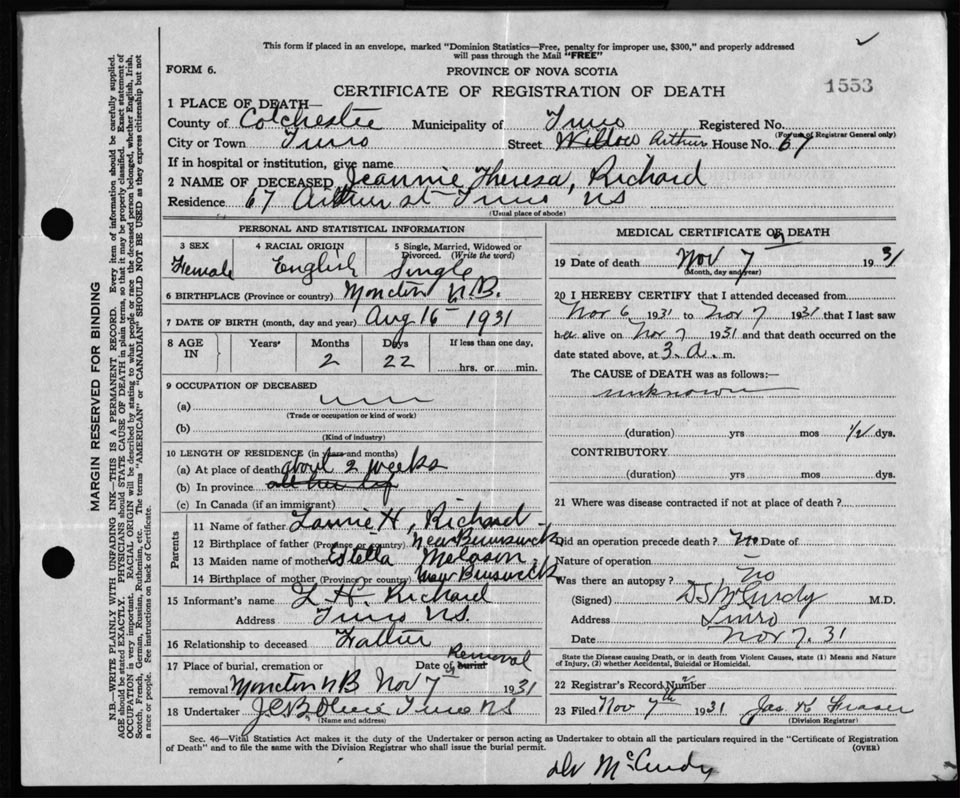 This form if placed in an envelope, marked "Dominion Statistics—Free, penalty for improper use, $300," and properly addressed
will pass through the Mail "FREE"
FORM 6.
PROVINCE OF NOVA SCOTIA
1553
CERTIFICATE OF REGISTRATION OF DEATH
1 PLACE OF DEATH—
County of Colchester Municipality of Truro Registered No.
(For use of Registrar General only)
City or Town Truro Street Willow Arthur House No. 67
If in hospital or institution, give name
2 NAME OF DECEASED Jeannie Theresa, Richard
Residence 67 Arthur St Truro NS
(Usual place of abode)
PERSONAL AND STATISTICAL INFORMATION
3 SEX 4 RACIAL ORIGIN 5 Single, Married, Widowed or Divorced. (Write the word)
Female English Single
6 BIRTHPLACE (Province or country) Moncton N.B.
7 DATE OF BIRTH (month, day and year) Aug 16 - 1931
8 AGE IN Years Months Days If less than one day,
2 22 hrs. or min.
9 OCCUPATION OF DECEASED
(a)
(Trade or occupation or kind of work)
(b)
(Kind of industry)
10 LENGTH OF RESIDENCE (in years and months)
(a) At place of death about 2 weeks
(b) In province all her life
(c) In Canada (if an immigrant)
Parents
11 Name of father H, Richard
12 Birthplace of father (Province or country) New Brunswick
13 Maiden name of mother Estella Melason
14 Birthplace of mother (Province or country) New Brunswick
15 Informant's name L H. Richard
Address Truro NS.
16 Relationship to deceased Father
17 Place of burial, cremation or Date of burial Removal
removal Moncton NB Nov 7 1931
18 Undertaker Truro NS
(Name and address)
MEDICAL CERTIFICATE OF DEATH
19 Date of death Nov 7 1931
(Month, day and year)
20 I HEREBY CERTIFY that I attended deceased from
Nov 6 1931 to Nov 7 1931 that I last saw
her alive on Nov 7 1931 and that death occurred on the
date stated above, at 3. a. m.
The CAUSE of DEATH was as follows:—
unknown
(duration) yrs mos 1/2 dys.
CONTRIBUTORY
(duration) yrs mos dys.
21 Where was disease contracted if not at place of death?
Did an operation precede death? No Date of
Nature of operation
Was there an autopsy? No
(Signed) D S McCurdy M.D.
Address Truro
Date Nov 7. 31
State the Disease causing Death, or in death from Violent Causes, state (1) Means and Nature
of Injury, (2) whether Accidental, Suicidal or Homicidal.
22 Registrar's Record Number
23 Filed Nov 7th 1931 Jas K Fraser
(Division Registrar)
Sec. 46—Vital Statistics Act makes it the duty of the Undertaker or person acting as Undertaker to obtain all the particulars required in the "Certificate of Registration
of Death" and to file the same with the Division Registrar who shall issue the burial permit.
(OVER)
Dr McCurdy
MARGIN RESERVED FOR BINDING
N.B.—WRITE PLAINLY WITH UNFADING INK—THIS IS A PERMANENT RECORD. Every item of information should be carefully supplied.
AGE should be stated EXACTLY. PHYSICIANS should STATE CAUSE OF DEATH in plain terms, so that it may be properly classified. Exact statement of
OCCUPATION is very important. RACIAL ORIGIN will be described by stating to what people or race the deceased person belonged, whether English, Irish,
Scotch, French, German, Russian, Ruthenian, etc. The terms "AMERICAN" or "CANADIAN" SHOULD NOT BE USED as they express citizenship but not
a race or people. See instructions on back of Certificate.